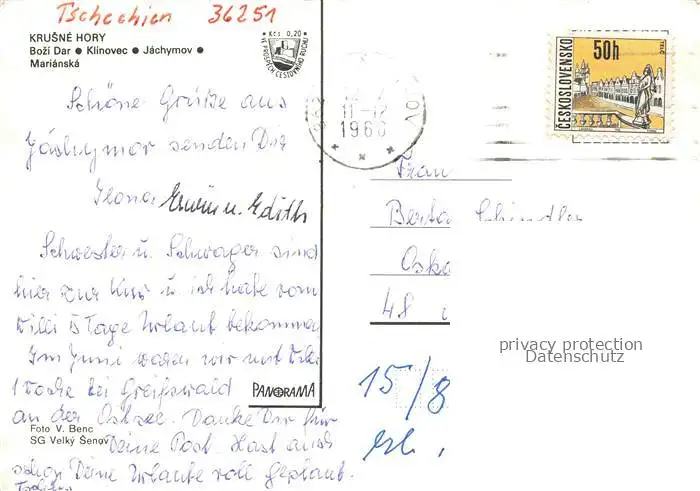 Tschechien 36251
KRUŠNÉ HORY
Boží Dar ● Klínovec ● Jáchymov ●
Mariánská
Kčs 0,20
VE PROSPĚCH CESTOVNÍHO RUCHU
Schöne Grüße aus
Jáchymov senden Dir
Ilona Erwin u. Edith
Schwester u. Schwager sind
hier zur Kur u. ich habe vom
Willi 5 Tage Urlaub bekommen
Im Juni waren wir mit Willi
1 Woche bei Greifswald
an der Ostsee. Danke Dir für
Deine Post. Hast auch
schon Deine Urlaube voll geplant.
PANORAMA
Foto V. Benc
SG Velký Šenov
11-12
1966
ČESKOSLOVENSKO
50h
TELČ
Frau
Berta Schindler
48
privacy protection
Datenschutz
15/8